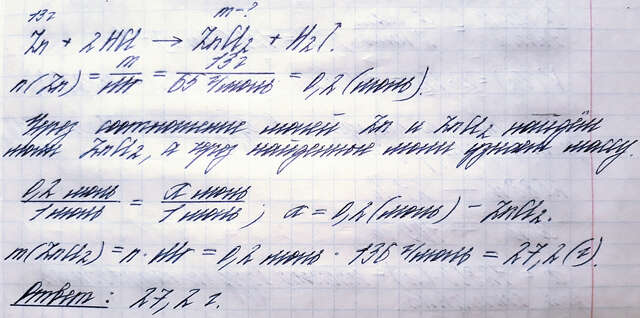 13 г m-?
Zn + 2HCl → ZnCl₂ + H₂↑.
n(Zn) = m/M = 13г/65 г/моль = 0,2 (моль).
Через соотношение молей Zn и ZnCl₂ найдём
моли ZnCl₂, а через найденные моли узнаем массу.
0,2 моль/1 моль = x моль/1 моль; x = 0,2 (моль) - ZnCl₂.
m(ZnCl₂) = n · M = 0,2 моль · 136 г/моль = 27,2 (г).
Ответ: 27,2 г.